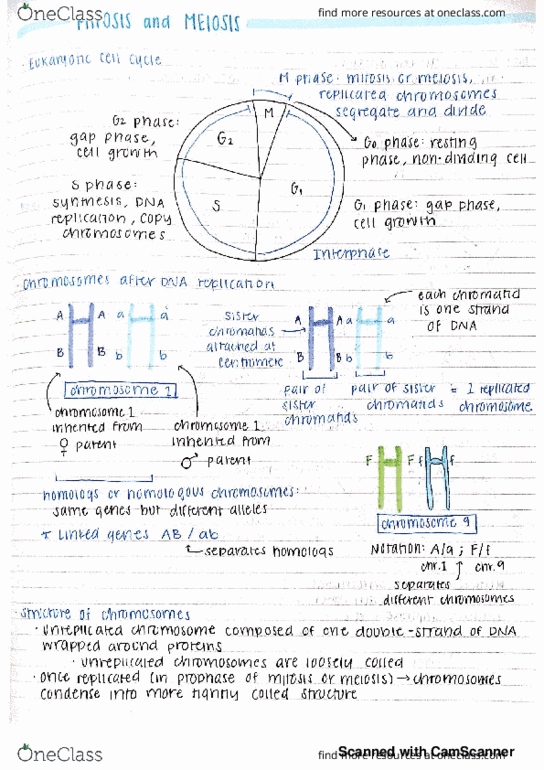 OneClass
find more resources at oneclass.com
MITOSIS and MEIOSIS
· Eukaryotic cell cycle
M phase: mitosis or meiosis,
replicated chromosomes
segregate and divide
G2 phase:
gap phase,
cell growth
M
G2
G0 phase: resting
phase, non-dividing cell
S phase:
synthesis, DNA
replication, copy
chromosomes
S
G1
G1 phase: gap phase,
cell growth
Interphase
· chromosomes after DNA replication
each chromatid
is one strand
of DNA
A A a a
B B b b
sister
chromatids
attached at
centromere
A A a a
B B b b
chromosome 1
pair of
sister
chromatids
pair of sister
chromatids
= 1 replicated
chromosome
chromosome 1
inherited from
♀ parent
chromosome 1
inherited from
♂ parent
F F f f
chromosome 9
homologs or homologous chromosomes:
same genes but different alleles
* Linked genes AB / ab
separates homologs
Notation: A/a ; F/f
chr.1 chr.9
separates
different chromosomes
· structure of chromosomes
· unreplicated chromosome composed of one double-strand of DNA
wrapped around proteins
· unreplicated chromosomes are loosely coiled
· once replicated (in prophase of mitosis or meiosis) → chromosomes
condense into more tightly coiled structure
OneClass
find more resources at oneclass.com
Scanned with CamScanner